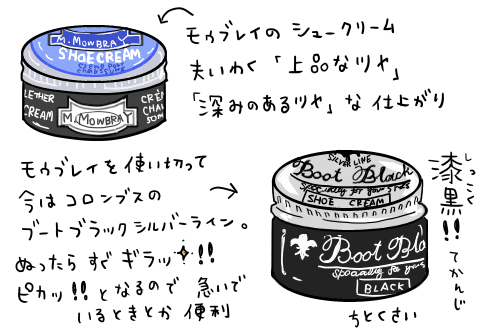 M. MOWBRAY
SHOE CREAM
LETHER
CREAM
M.MOWBRAY
モゥブレイの シュークリーム
夫いわく 「上品なツヤ」
「深みのあるツヤ」な 仕上がり
モゥブレイを 使い切って
今は コロンブスの
ブートブラック シルバーライン。
ぬったら すぐ ギラッ!!
ピカッ!! と なるので 急いで
いるときとか 便利
SILVER LINE
Boot Black
Specially for your
SHOE CREAM
Boot Bla
Specially for your
BLACK
しっこく
漆黒!! てかんじ
ちとくさい